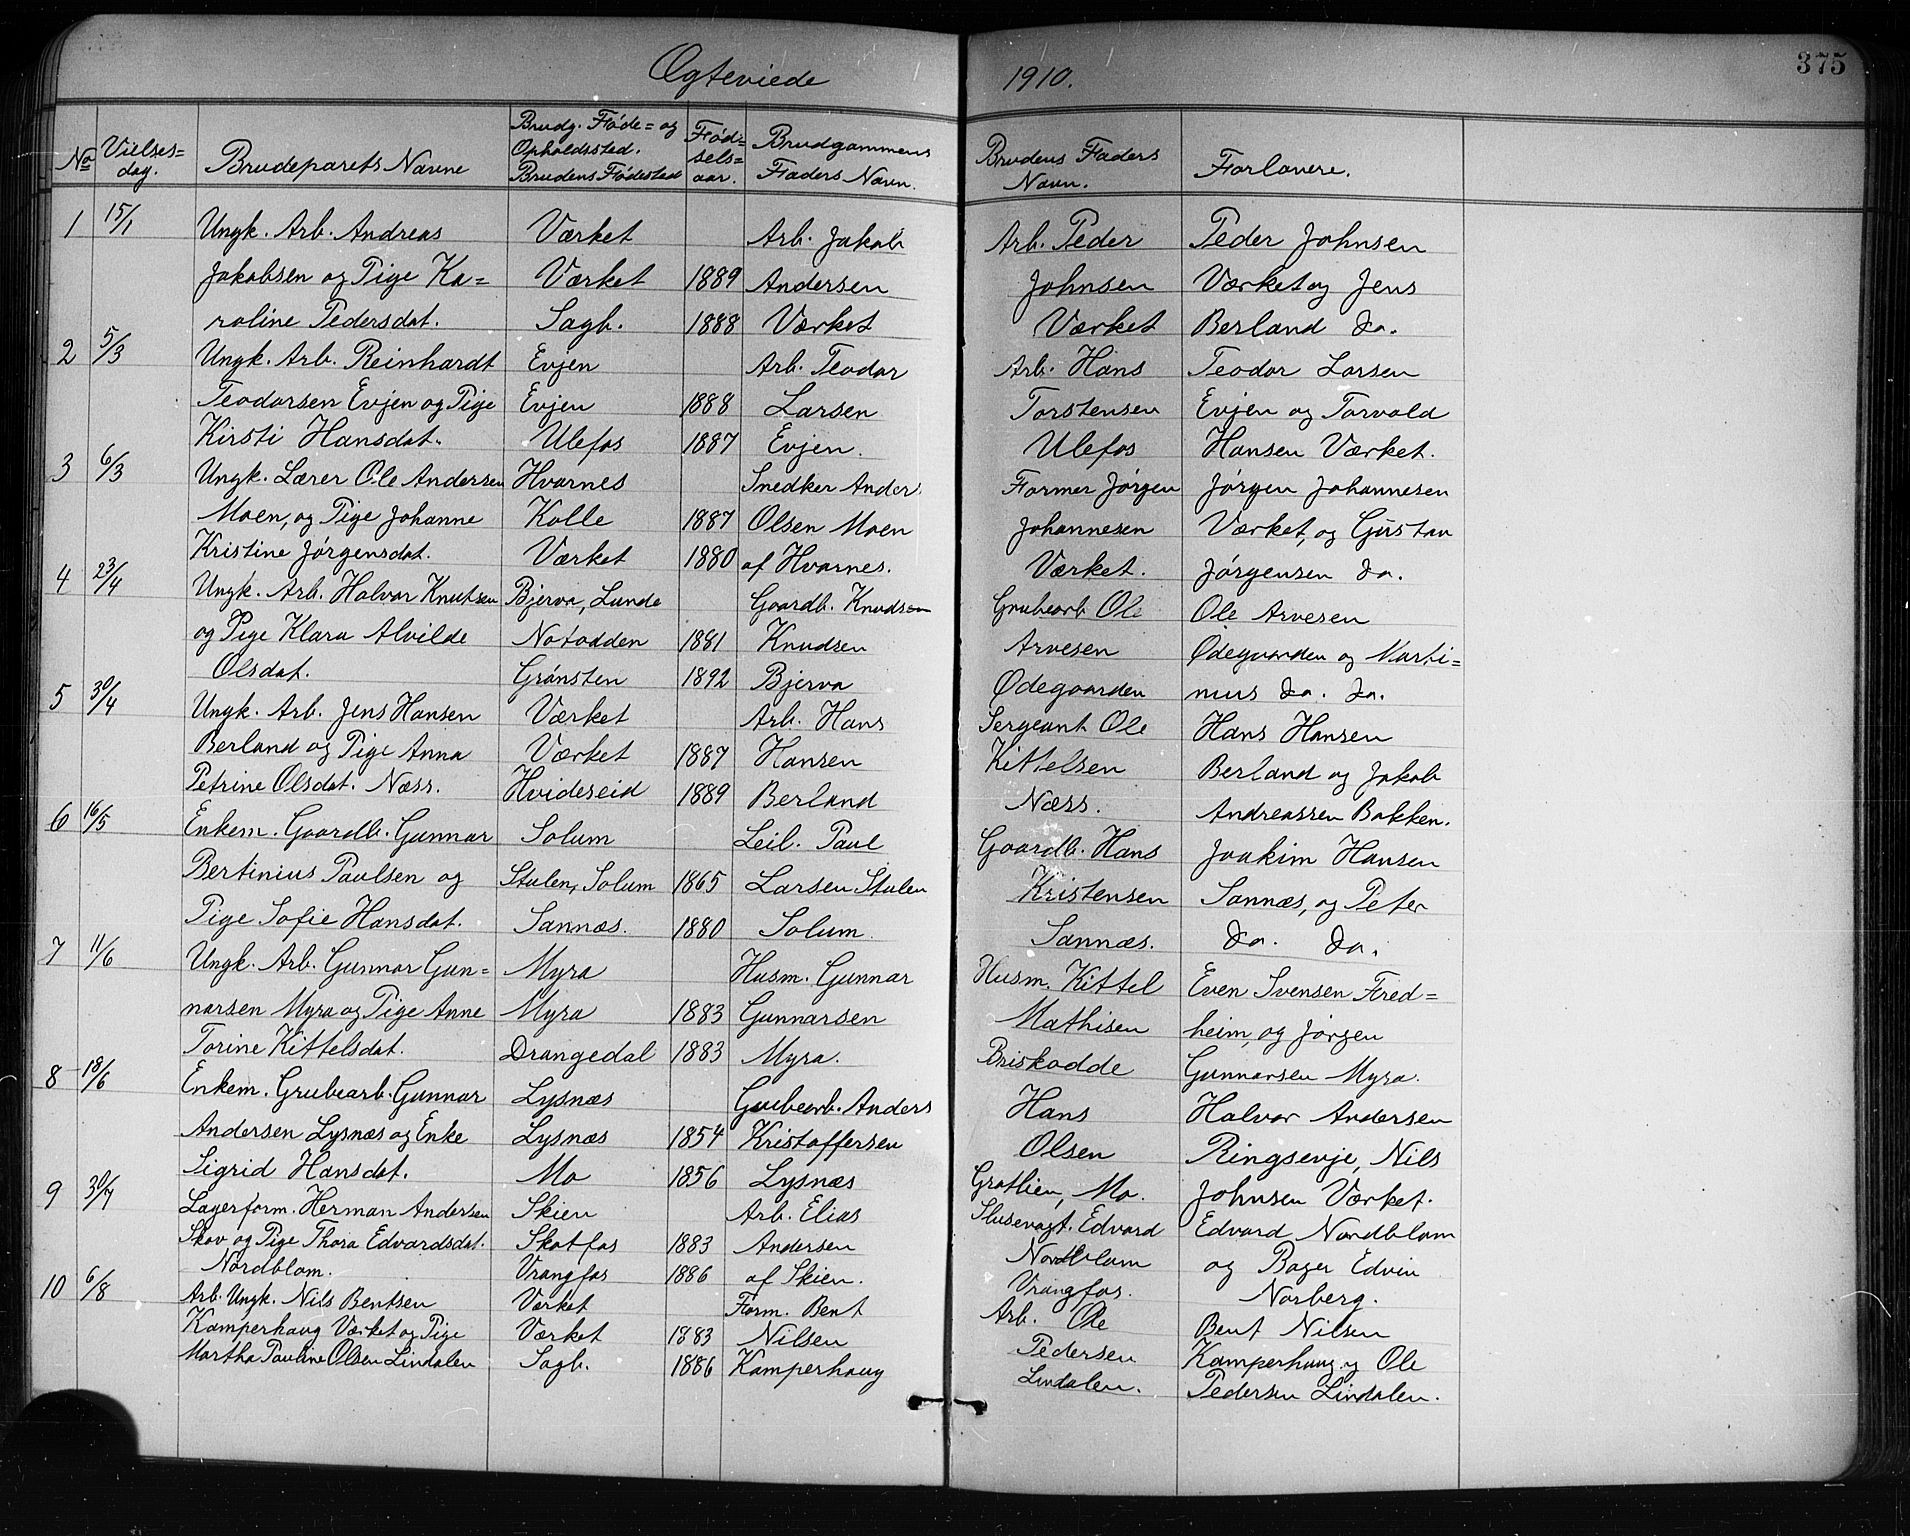 Ægteviede 1910. 375
No Vielses= dag. Brudeparets Navne Brudg. Føde= og Opholdssted. Brudens Fødested Fød= sels= aar. Brudgommens Faders Navn. Brudens Faders Navn. Forlovere.
1 15/1 Ungk. Arb. Andreas Værket Arb. Jakob Arb. Peder Peder Johnsen
Jakobsen og Pige Ka= Værket 1889 Andersen Johnsen Værket og Jens
roline Pedersdat. Sagb. 1888 Værket Værket Berland do.
2 5/3 Ungk. Arb. Reinhardt Evjen Arb. Teodor Arb. Hans Teodor Larsen
Teodorsen Evjen og Pige Evjen 1888 Larsen Torstensen Evjen og Torvald
Kirsti Hansdat. Ulefos 1887 Evjen. Ulefos Hansen Værket.
3 6/3 Ungk. Lærer Ole Andersen Hvarnes Snedker Anders Former Jørgen Jørgen Johannesen
Moen, og Pige Johanne Kolle 1887 Olsen Moen Johannesen Værket, og Gustav
Kristine Jørgensdat. Værket 1880 af Hvarnes. Værket. Jørgensen do.
4 23/4 Ungk. Arb. Halvor Knutsen Bjerva, Lunde Gaardb. Knudsen Grubearb. Ole Ole Arvesen
og Pige Klara Alvilde Notodden 1881 Knudsen Arvesen Ødegaarden og Marti=
Olsdat. Grønsten 1892 Bjerva Ødegaarden nus do. do.
5 30/4 Ungk. Arb. Jens Hansen Værket Arb. Hans Sergeant Ole Hans Hansen
Berland og Pige Anna Værket 1887 Hansen Kittelsen Berland og Jakob
Petrine Olsdat. Næss. Hvideseid 1889 Berland Næss. Andreassen Bakken.
6 16/5 Enkem. Gaardb. Gunnar Solum Leil. Paul Gaardb. Hans Joakim Hansen
Bertinius Paulsen og Stulen, Solum 1865 Larsen Stulen Kristensen Sannæs, og Peter
Pige Sofie Hansdat. Sannæs. 1880 Solum. Sannæs. do. do.
7 11/6 Ungk. Arb. Gunnar Gun= Myra Husm. Gunnar Husm. Kittel Even Svensen Fred=
narsen Myra og Pige Anne Myra 1883 Gunnarsen Mathisen heim, og Jørgen
Torine Kittelsdat. Drangedal 1883 Myra. Briskodde Gunnarsen Myra.
8 18/6 Enkem. Grubearb. Gunnar Lysnæs Grubearb. Anders Hans Halvor Andersen
Andersen Lysnæs og Enke Lysnæs 1854 Kristoffersen Olsen Ringsevje, Nils
Sigrid Hansdat. Mo 1856 Lysnæs Grotlien, Mo. Johnsen Værket.
9 30/7 Lagerform. Herman Andersen Skien Arb. Elias Slusevogt. Edvard Edvard Nordblom
Skov og Pige Thora Edvardsdat. Skotfos 1883 Andersen Nordblom og Bager Edvin
Nordblom. Vrangfos 1886 af Skien. Vrangfos. Norberg.
10 6/8 Arb. Ungk. Nils Bentsen Værket Form. Bent Arb. Ole Bent Nilsen
Kamperhaug Værket og Pige Værket 1883 Nilsen Pedersen Kamperhaug og Ole
Martha Pauline Olsen Lindalen Sagb. 1886 Kamperhaug Lindalen. Pedersen Lindalen.